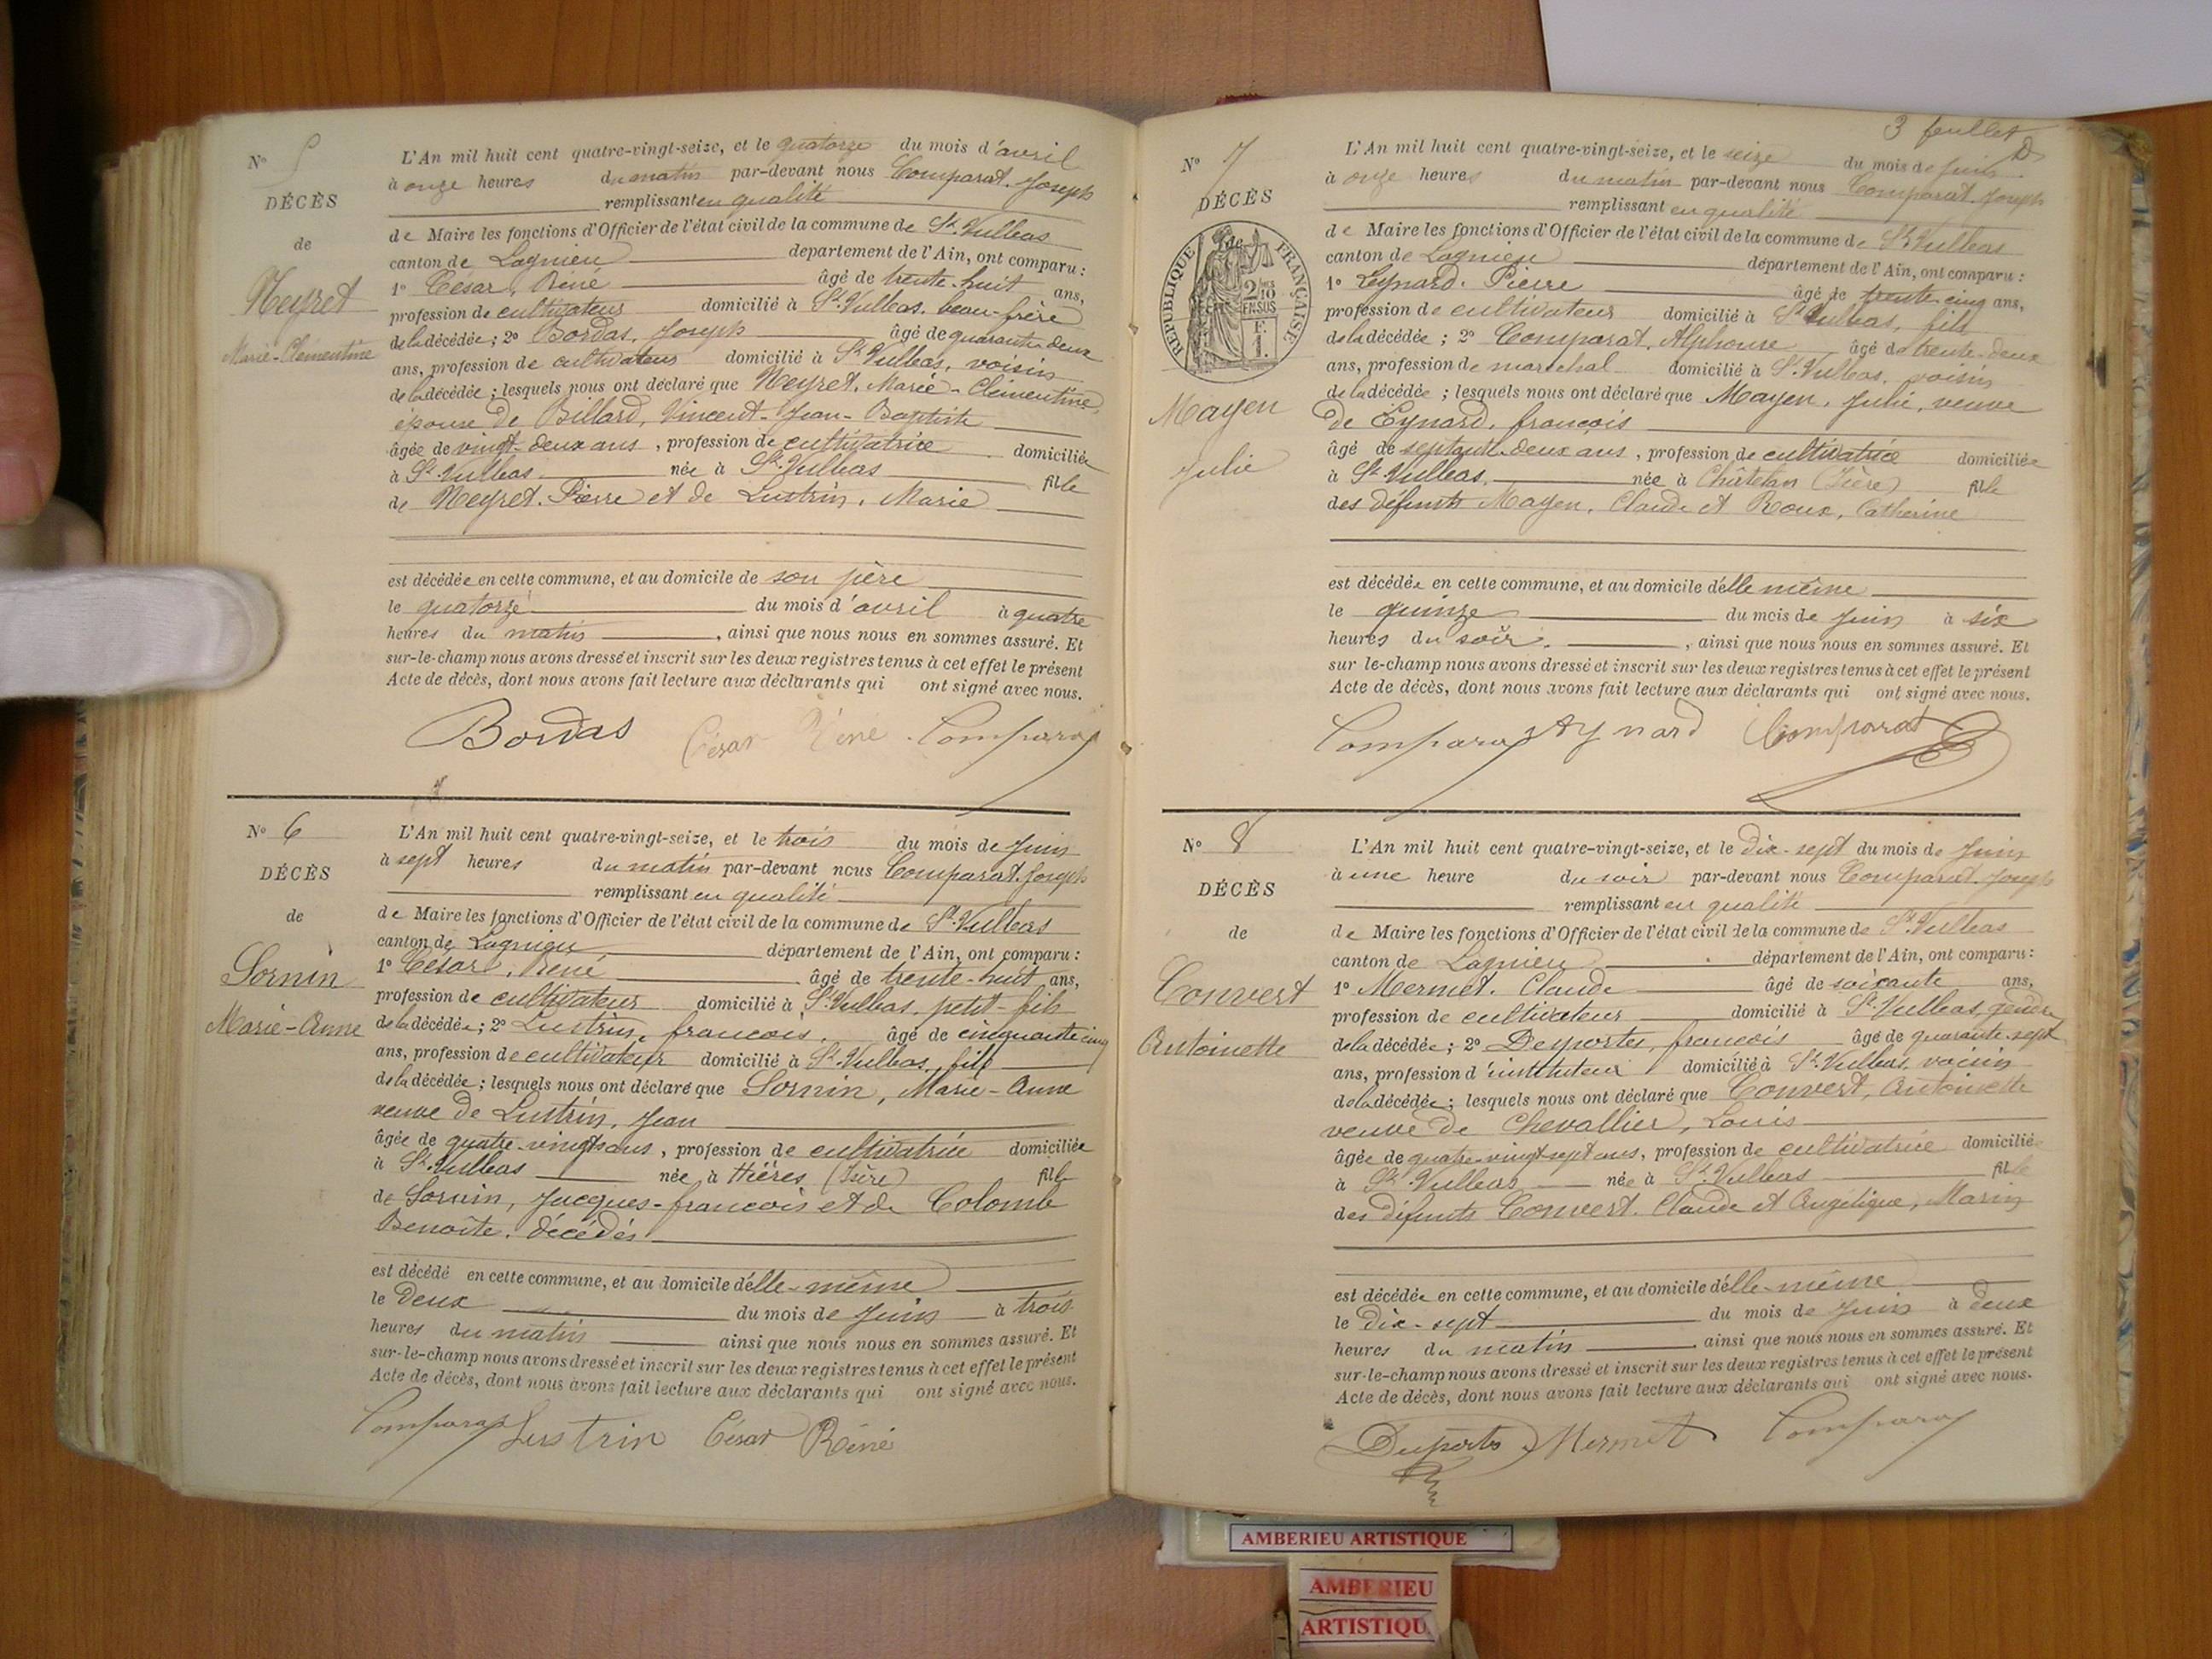 N° 5
DÉCÈS
de
Neyret
Marie-Clémentine
L'An mil huit cent quatre-vingt-seize, et le quatorze du mois d'avril
à onze heures du matin par-devant nous Comparat. Joseph
remplissant en qualité
de Maire les fonctions d'Officier de l'état civil de la commune de St. Vulbas
canton de Lagnieu département de l'Ain, ont comparu :
1° César, Réné âgé de trente-huit ans,
profession de cultivateur domicilié à St. Vulbas. beau-frère
de la décédée ; 2° Bordas, Joseph âgé de quarante-deux
ans, profession de cultivateur domicilié à St. Vulbas, voisin
de la décédée ; lesquels nous ont déclaré que Neyret, Marie-Clémentine,
épouse de Billard, Vincent-Jean-Baptiste
âgée de vingt-deux ans, profession de cultivatrice domiciliée
à St. Vulbas née à St. Vulbas fille
de Neyret. Pierre et de Lustrin, Marie
est décédée en cette commune, et au domicile de son père
le quatorze du mois d'avril à quatre
heures du matin, ainsi que nous nous en sommes assuré. Et
sur-le-champ nous avons dressé et inscrit sur les deux registres tenus à cet effet le présent
Acte de décès, dont nous avons fait lecture aux déclarants qui ont signé avec nous.
Bordas César Réné Comparat
N° 6
DÉCÈS
de
Sornin
Marie-Anne
L'An mil huit cent quatre-vingt-seize, et le trois du mois de Juin
à sept heures du matin par-devant nous Comparat. Joseph
remplissant en qualité
de Maire les fonctions d'Officier de l'état civil de la commune de St. Vulbas
canton de Lagnieu département de l'Ain, ont comparu :
1° César, René âgé de trente-huit ans,
profession de cultivateur domicilié à St. Vulbas, petit-fils
de la décédée ; 2° Lustrin, françois, âgé de cinquante cinq
ans, profession de cultivateur domicilié à St. Vulbas, fils
de la décédée ; lesquels nous ont déclaré que Sornin, Marie-Anne
veuve de Lustrin, Jean
âgée de quatre-vingts ans, profession de cultivatrice domiciliée
à St. Vulbas née à Hières (Isère) fille
de Sornin, Jacques-françois et de Colomb
Benoîte, décédés
est décédé en cette commune, et au domicile d'elle-même
le deux du mois de Juin à trois
heures du matin ainsi que nous nous en sommes assuré. Et
sur-le-champ nous avons dressé et inscrit sur les deux registres tenus à cet effet le présent
Acte de décès, dont nous avons fait lecture aux déclarants qui ont signé avec nous.
Comparat Lustrin César Réné
3 feuillet
N° 7
DÉCÈS
de
RÉPUBLIQUE FRANÇAISE
2/10 EN SUS
F. 1.
Mayen
Julie
L'An mil huit cent quatre-vingt-seize, et le seize du mois de Juin
à onze heures du matin par-devant nous Comparat. Joseph
remplissant en qualité
de Maire les fonctions d'Officier de l'état civil de la commune de St. Vulbas
canton de Lagnieu département de l'Ain, ont comparu :
1° Eynard. Pierre âgé de trente cinq ans,
profession de cultivateur domicilié à St. Vulbas, fils
de la décédée ; 2° Comparat, Alphonse âgé de trente-deux
ans, profession de maréchal domicilié à St. Vulbas, voisin
de la décédée ; lesquels nous ont déclaré que Mayen, Julie, veuve
de Eynard, françois
âgé de septante-deux ans, profession de cultivatrice domiciliée
à St. Vulbas, née à Châtelan (Isère) fille
des défunts Mayen, Claude et Roux, Catherine
est décédée en cette commune, et au domicile d'elle même
le quinze du mois de Juin à six
heures du soir, ainsi que nous nous en sommes assuré. Et
sur le-champ nous avons dressé et inscrit sur les deux registres tenus à cet effet le présent
Acte de décès, dont nous avons fait lecture aux déclarants qui ont signé avec nous.
Comparat Aynard Comparat
N° 8
DÉCÈS
de
Convert
Antoinette
L'An mil huit cent quatre-vingt-seize, et le dix-sept du mois de Juin
à une heure du soir par-devant nous Comparat. Joseph
remplissant en qualité
de Maire les fonctions d'Officier de l'état civil de la commune de St. Vulbas
canton de Lagnieu département de l'Ain, ont comparu :
1° Mermet. Claude âgé de soixante ans,
profession de cultivateur domicilié à St. Vulbas, gendre
de la décédée ; 2° Desportes, françois âgé de quarante-sept
ans, profession d'instituteur domicilié à St. Vulbas, voisin
de la décédée ; lesquels nous ont déclaré que Convert, Antoinette
veuve de Chevallier, Louis
âgée de quatre-vingt sept ans, profession de cultivatrice domiciliée
à St. Vulbas née à St. Vulbas fille
des défunts Convert. Claude et Angélique, Marin
est décédée en cette commune, et au domicile d'elle-même
le dix-sept du mois de Juin à deux
heures du matin ainsi que nous nous en sommes assuré. Et
sur-le-champ nous avons dressé et inscrit sur les deux registres tenus à cet effet le présent
Acte de décès, dont nous avons fait lecture aux déclarants qui ont signé avec nous.
Desportes Mermet Comparat
AMBERIEU ARTISTIQUE
AMBERIEU
ARTISTIQU